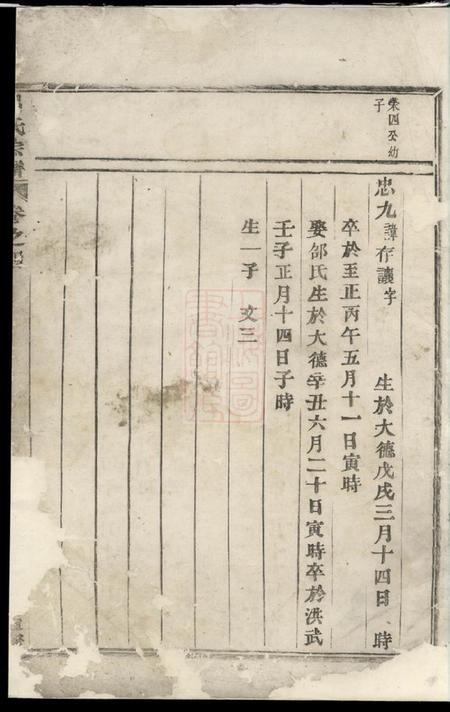 榮四公幼
子
忠九諱存讓字 生於大德戊戌三月十四日 時
卒於至正丙午五月十一日寅時
娶邵氏生於大德辛丑六月二十日寅時卒於洪武
壬子正月十四日子時
生一子 文三
氏宗譜 卷之